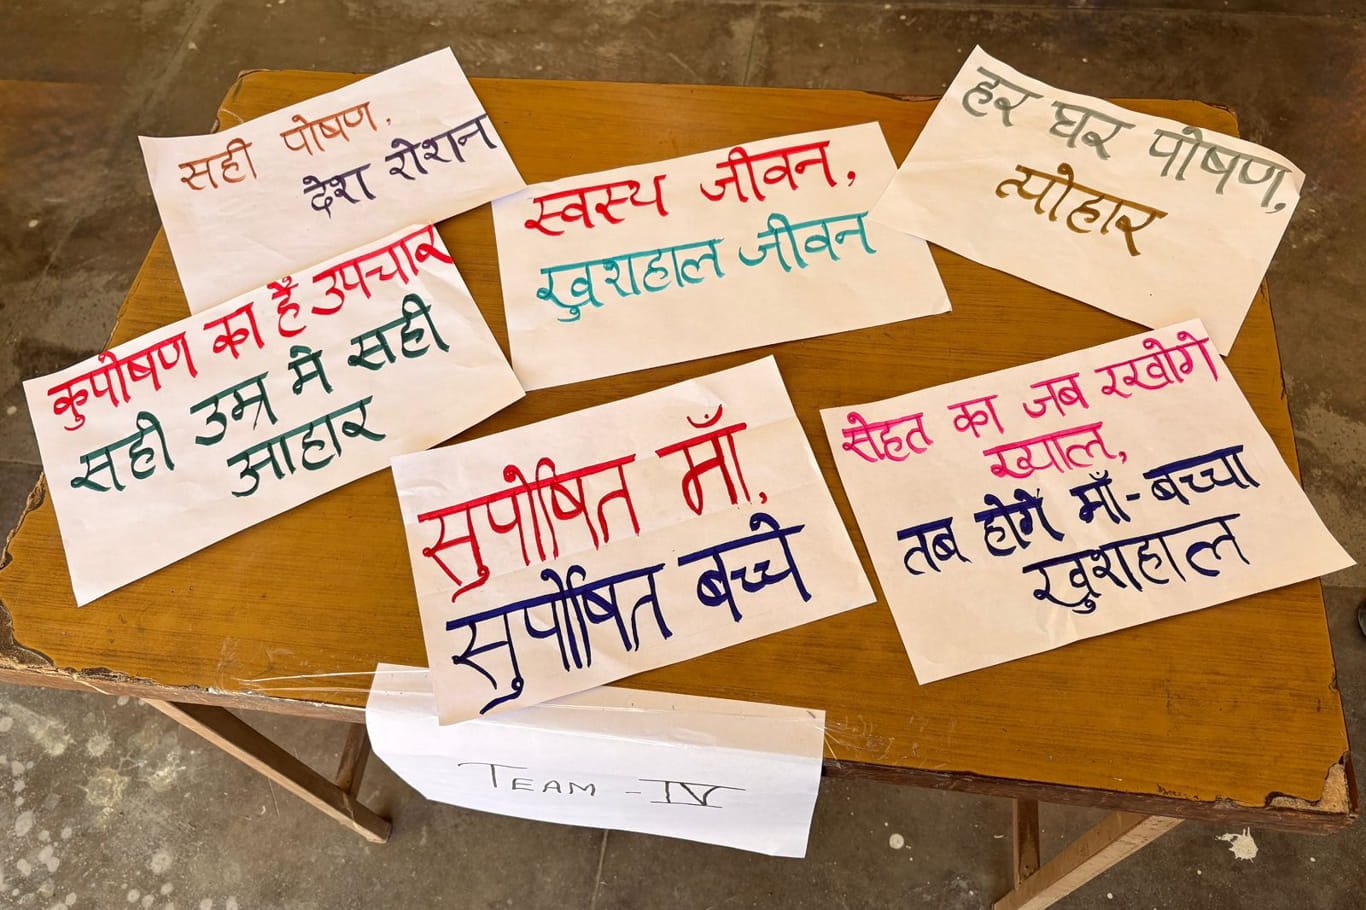 सही पोषण,
देश रोशन
स्वस्थ जीवन,
खुशहाल जीवन
हर घर पोषण,
त्योहार
कुपोषण का है उपचार
सही उम्र मे सही
आहार
सुपोषित माँ,
सुपोषित बच्चे
सेहत का जब रखोगे
ख्याल,
तब होगें माँ-बच्चा
खुशहाल
TEAM - IV